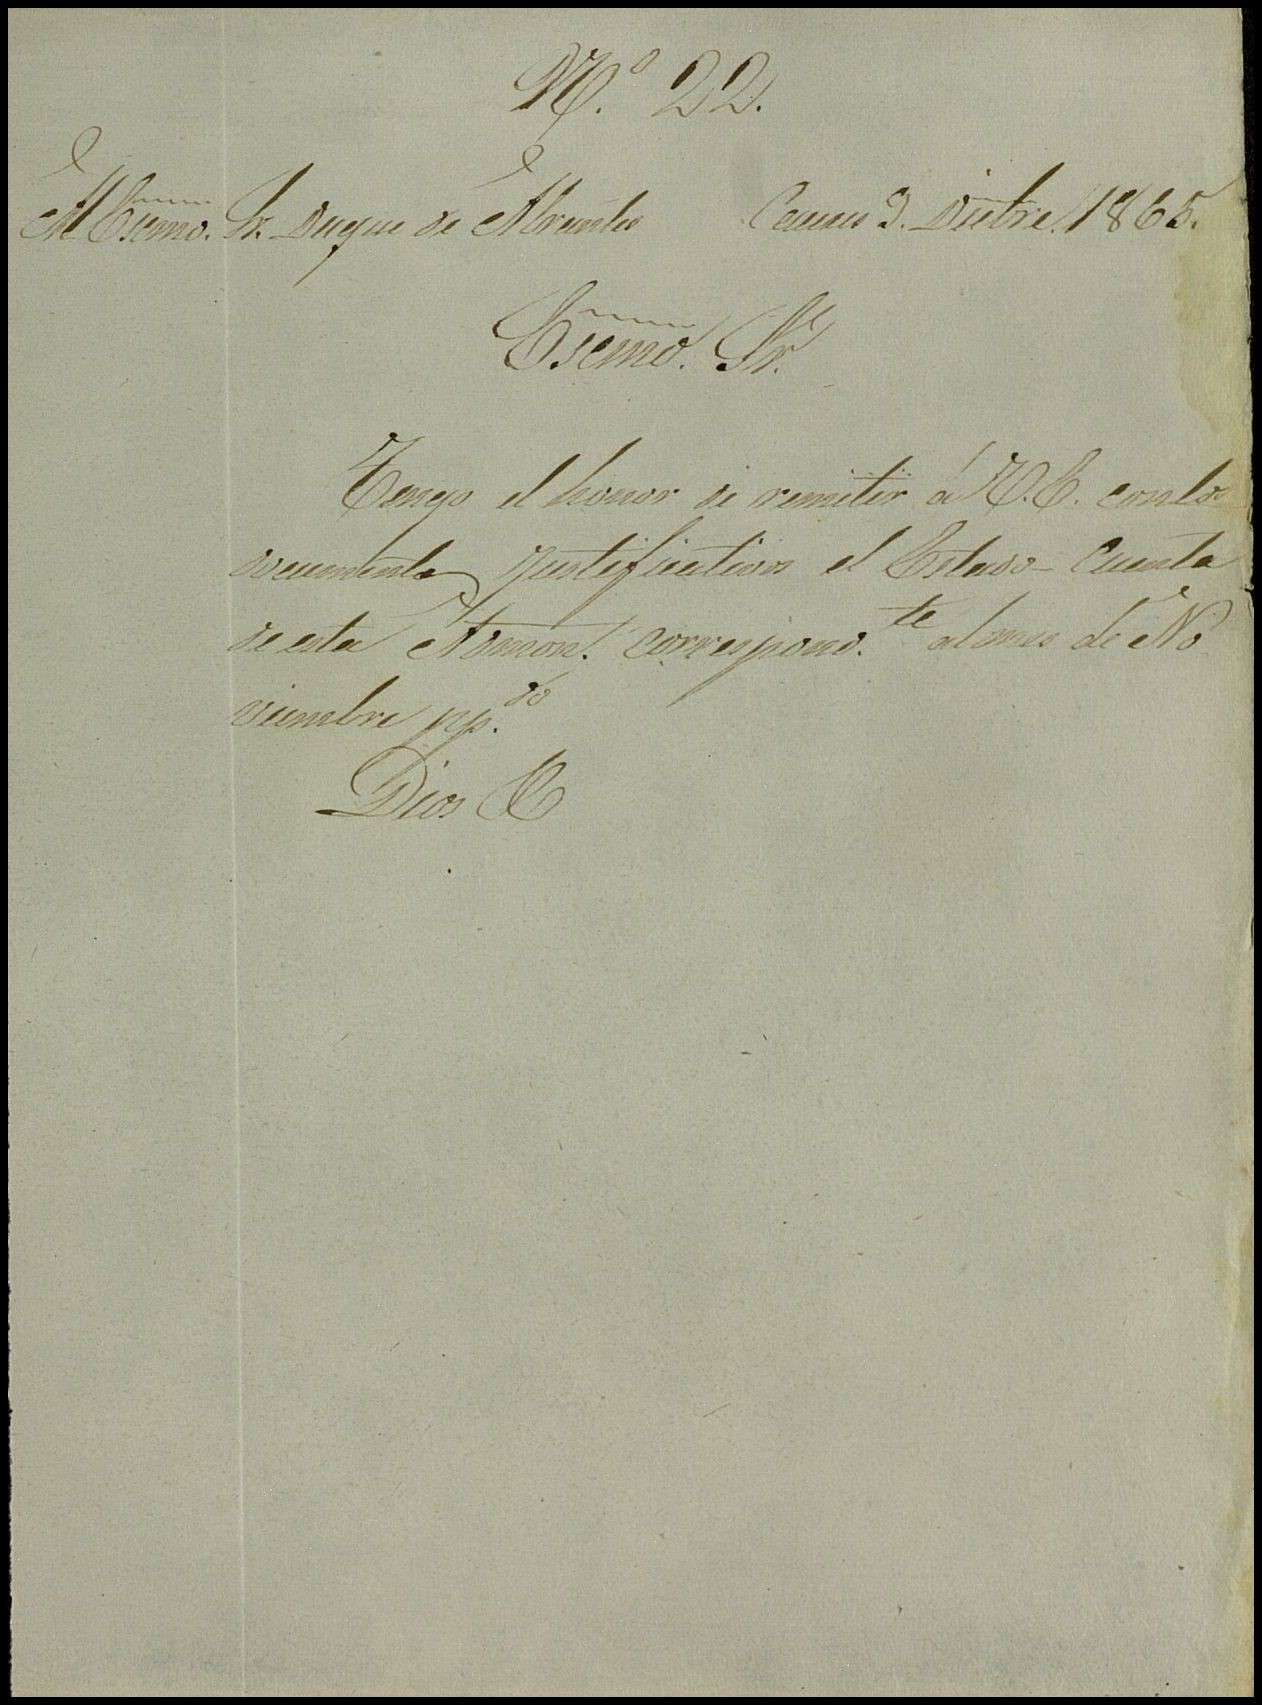 N.º 22.
Al Escmo. Sr. Duque de Abrantes 3. Dicbre. 1865.
Escmo. Sr.
Tengo el honor de remitir á V.E. con los
documentos justificativos el Estado-Cuenta
de esta Admon. correspond.te al mes de No
viembre pp.do
Dios &